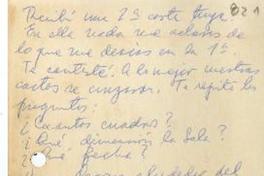 821
Recibí una 2ª carta tuya.
En ella nada me aclaras de
lo que me decías en la 1ª.
Te contesté. A lo mejor nuestras
cartas se cruzaron. Te repito las
preguntas:
¿Cuántos cuadros?
¿Qué dimensión la Sala?
¿Qué fecha?
alrededor del